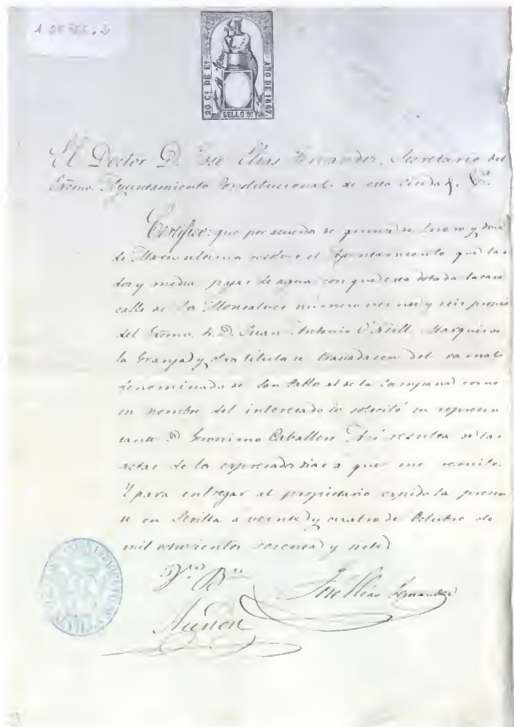 20 Cs DE Eo
AÑO DE 1867
SELLO 9o
El Doctor D. José Elias Fernandez, Secretario del
Excmo. Ayuntamiento Constitucional de esta Ciudad, &a.
Certifico: que por acuerdo de quince de Enero y doce
de Marzo ultimo el Ayuntamiento que las
dos y media pajas de agua con que esta dotada la casa
calle de los Monsalves numero veinte y seis propia
del Excmo. Sr. D. Juan Antonio O'Neill, Marques de
la Granja y Otros titulos se trasladasen del ramal
denominado de San Pablo al de la Campana como
en nombre del interesado lo solicitó su represen
tante D. Geronimo Caballero. Asi resulta de las
actas de los expresados dias a que me remito.
Y para entregar al propietario expido la presen
te en Sevilla a veinte y cuatro de Octubre de
mil ochocientos sesenta y siete
Vto. Bno.
José Elias Fernandez